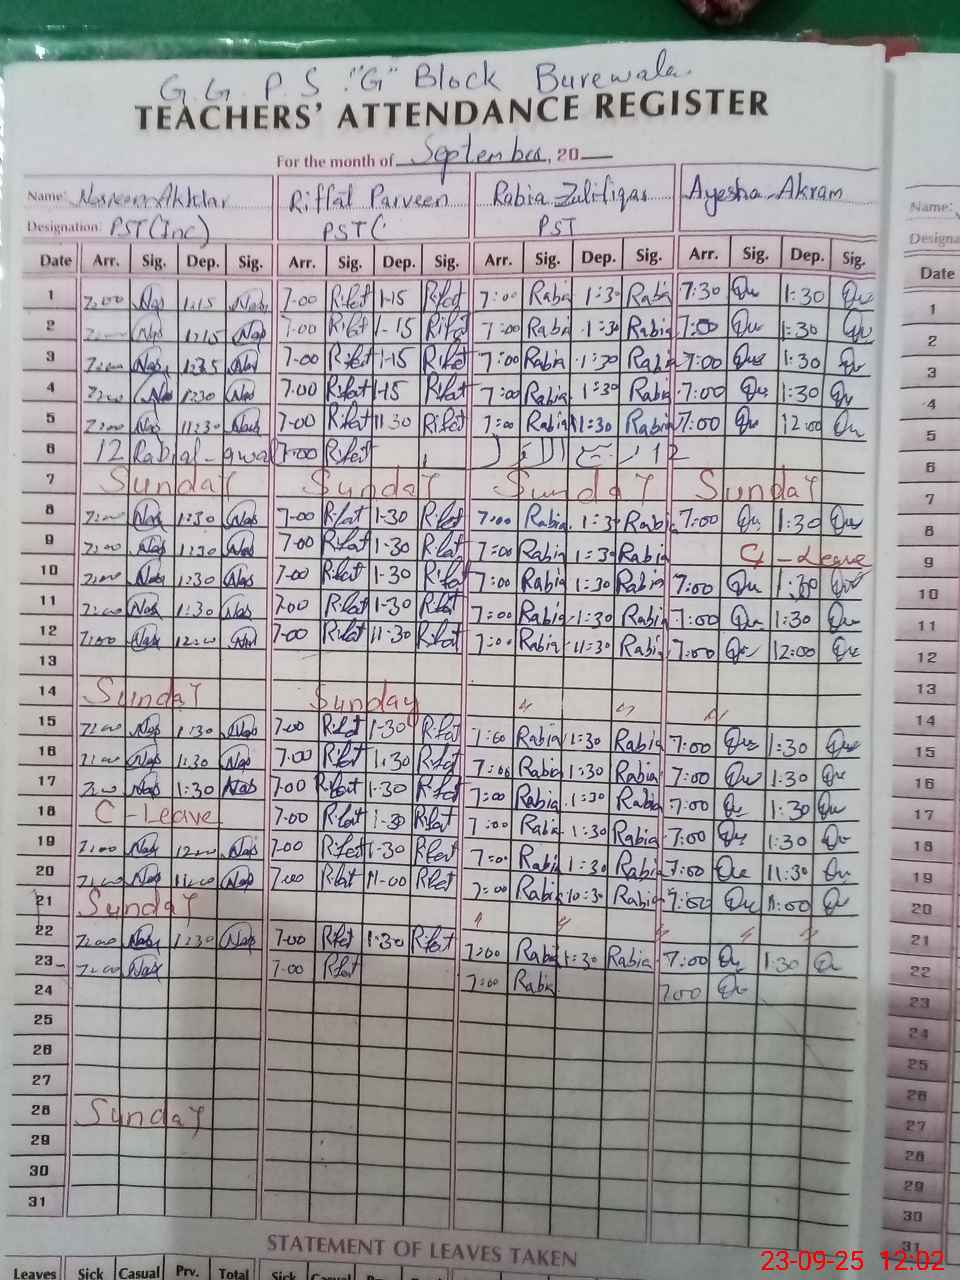 G.G. P.S "G" Block Burewala.
TEACHERS' ATTENDANCE REGISTER
For the month of September, 20
Name: Nasreen Akhtar Riffat Parveen Rabia Zulifiqas Ayesha Akram Name:
Designation: PST(Inc) PST( PST Designa
Date Arr. Sig. Dep. Sig. Arr. Sig. Dep. Sig. Arr. Sig. Dep. Sig. Arr. Sig. Dep. Sig. Date
1 7:00 Nas 1:15 Nas 7-00 Rifat 1-15 Rifat 7:00 Rabia 1:30 Rabia 7:30 1:30 1
2 Nas 1:15 Nas 7-00 Rifat 1-15 Rifat 7:00 Rabia 1:30 Rabia 7:00 1:30 2
3 7:00 Nas Nas 7-00 Rifat 1-15 Rifat 7:00 Rabia 1:30 Rabia 7:00 1:30 3
4 7:00 Nas 1:30 Nas 7-00 Rifat 1-15 Rifat 7:00 Rabia 1:30 Rabia 7:00 1:30 4
5 7:00 Nas 11:30 Nas 7-00 Rifat 11 30 Rifat 7:00 Rabia 11:30 Rabia 7:00 12:00 5
6 12 Rabial-awal 7-00 Rifat 6
7 Sunday Sunday Sunday Sunday 7
8 7:00 Nas 1:30 Nas 7-00 Rifat 1-30 Rifat 7:00 Rabia 1:30 Rabia 7:00 1:30 8
9 7:00 Nas 1:30 Nas 7-00 Rifat 1-30 Rifat 7:00 Rabia 1:30 Rabia C - Leave 9
10 7:00 Nas 1:30 Nas 7-00 Rifat 1-30 Rifat 7:00 Rabia 1:30 Rabia 7:00 1:30 10
11 7:00 Nas 1:30 Nas 7-00 Rifat 1-30 Rifat 7:00 Rabia 1:30 Rabia 7:00 1:30 11
12 7:00 Nas 12:00 Nas 7-00 Rifat 11-30 Rifat 7:00 Rabia 11:30 Rabia 7:00 12:00 12
13 13
14 Sunday Sunday 〃 〃 〃 14
15 7:00 Nas 1:30 Nas 7-00 Rifat 1-30 Rifat 7:00 Rabia 1:30 Rabia 7:00 1:30 15
16 7:00 Nas 1:30 Nas 7-00 Rifat 1:30 Rifat 7:00 Rabia 1:30 Rabia 7:00 1:30 16
17 7:00 Nas 1:30 Nas 7-00 Rifat 1-30 Rifat 7:00 Rabia 1:30 Rabia 7:00 1:30 17
18 C - Leave 7-00 Rifat 1-30 Rifat 7:00 Rabia 1:30 Rabia 7:00 1:30 18
19 7:00 Nas 12:00 Nas 7-00 Rifat 1-30 Rifat 7:00 Rabia 1:30 Rabia 7:00 11:30 19
20 7:00 Nas 11:00 Nas 7:00 Rifat 11-00 Rifat 7:00 Rabia 10:30 Rabia 7:00 11:00 20
21 Sunday 〃 〃 〃 〃 〃 21
22 7:00 Nas 1:30 Nas 7-00 Rifat 1:30 Rifat 7:00 Rabia 1:30 Rabia 7:00 1:30 22
23 7:00 Nas 7-00 Rifat 7:00 Rabia 7:00 23
24 24
25 25
26 26
27 27
28 Sunday 28
29 29
30 30
31 31
STATEMENT OF LEAVES TAKEN
Leaves Sick Casual Prv. Total Sick Casual Prv.
23-09-25 12:02